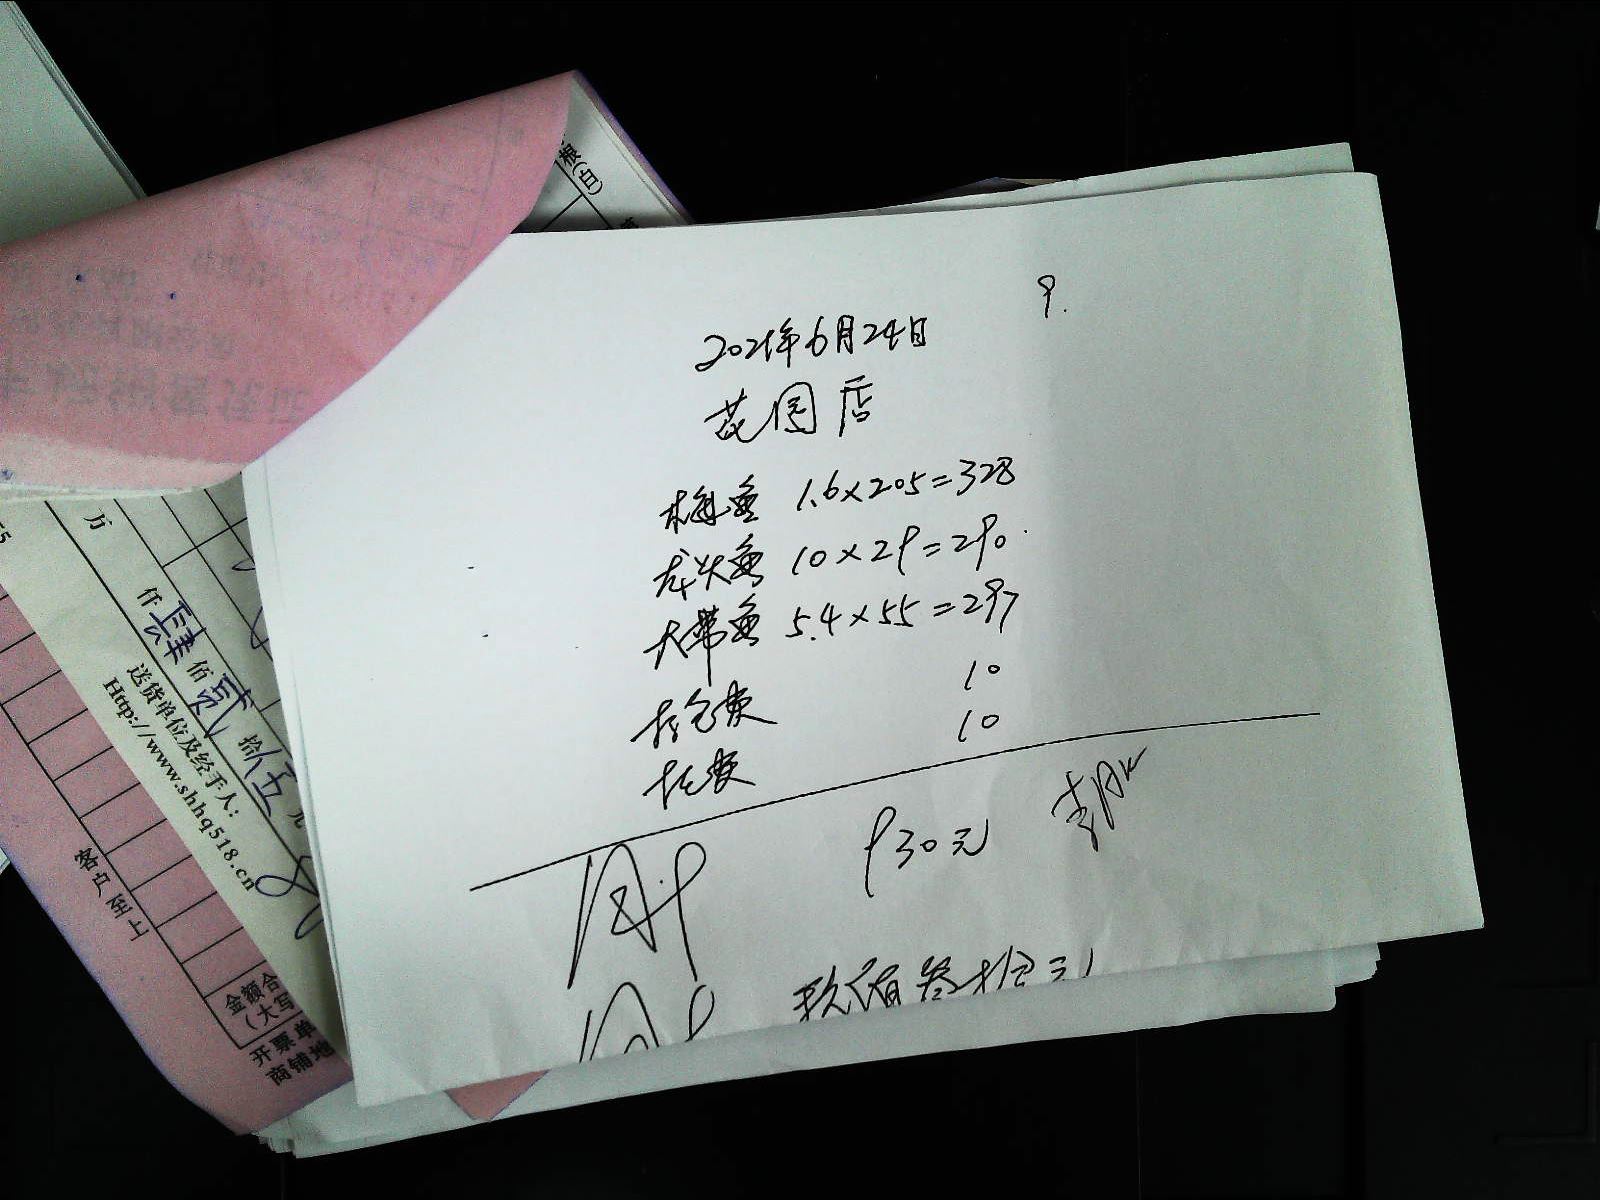 9.
2021年6月24日
花园店
梅鱼 1.6×205=328
龙头鱼 10×29=290.
大带鱼 5.4×55=297
打包费 10
托费 10
930元
玖佰叁拾元
根(白)
万
仟肆佰贰拾伍元
送货单位及经手人:
Http://www.shhq518.cn
客户至上
金额合
(大写
开票单
商铺地